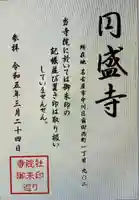 円盛寺
所在地 名古屋市中川区前田西町一丁目九〇六
当寺院に於いては御朱印の
記帳並び置き印は取り扱い
していません。
参拝 令和五年三月二十四日
寺院社
御朱印
巡り